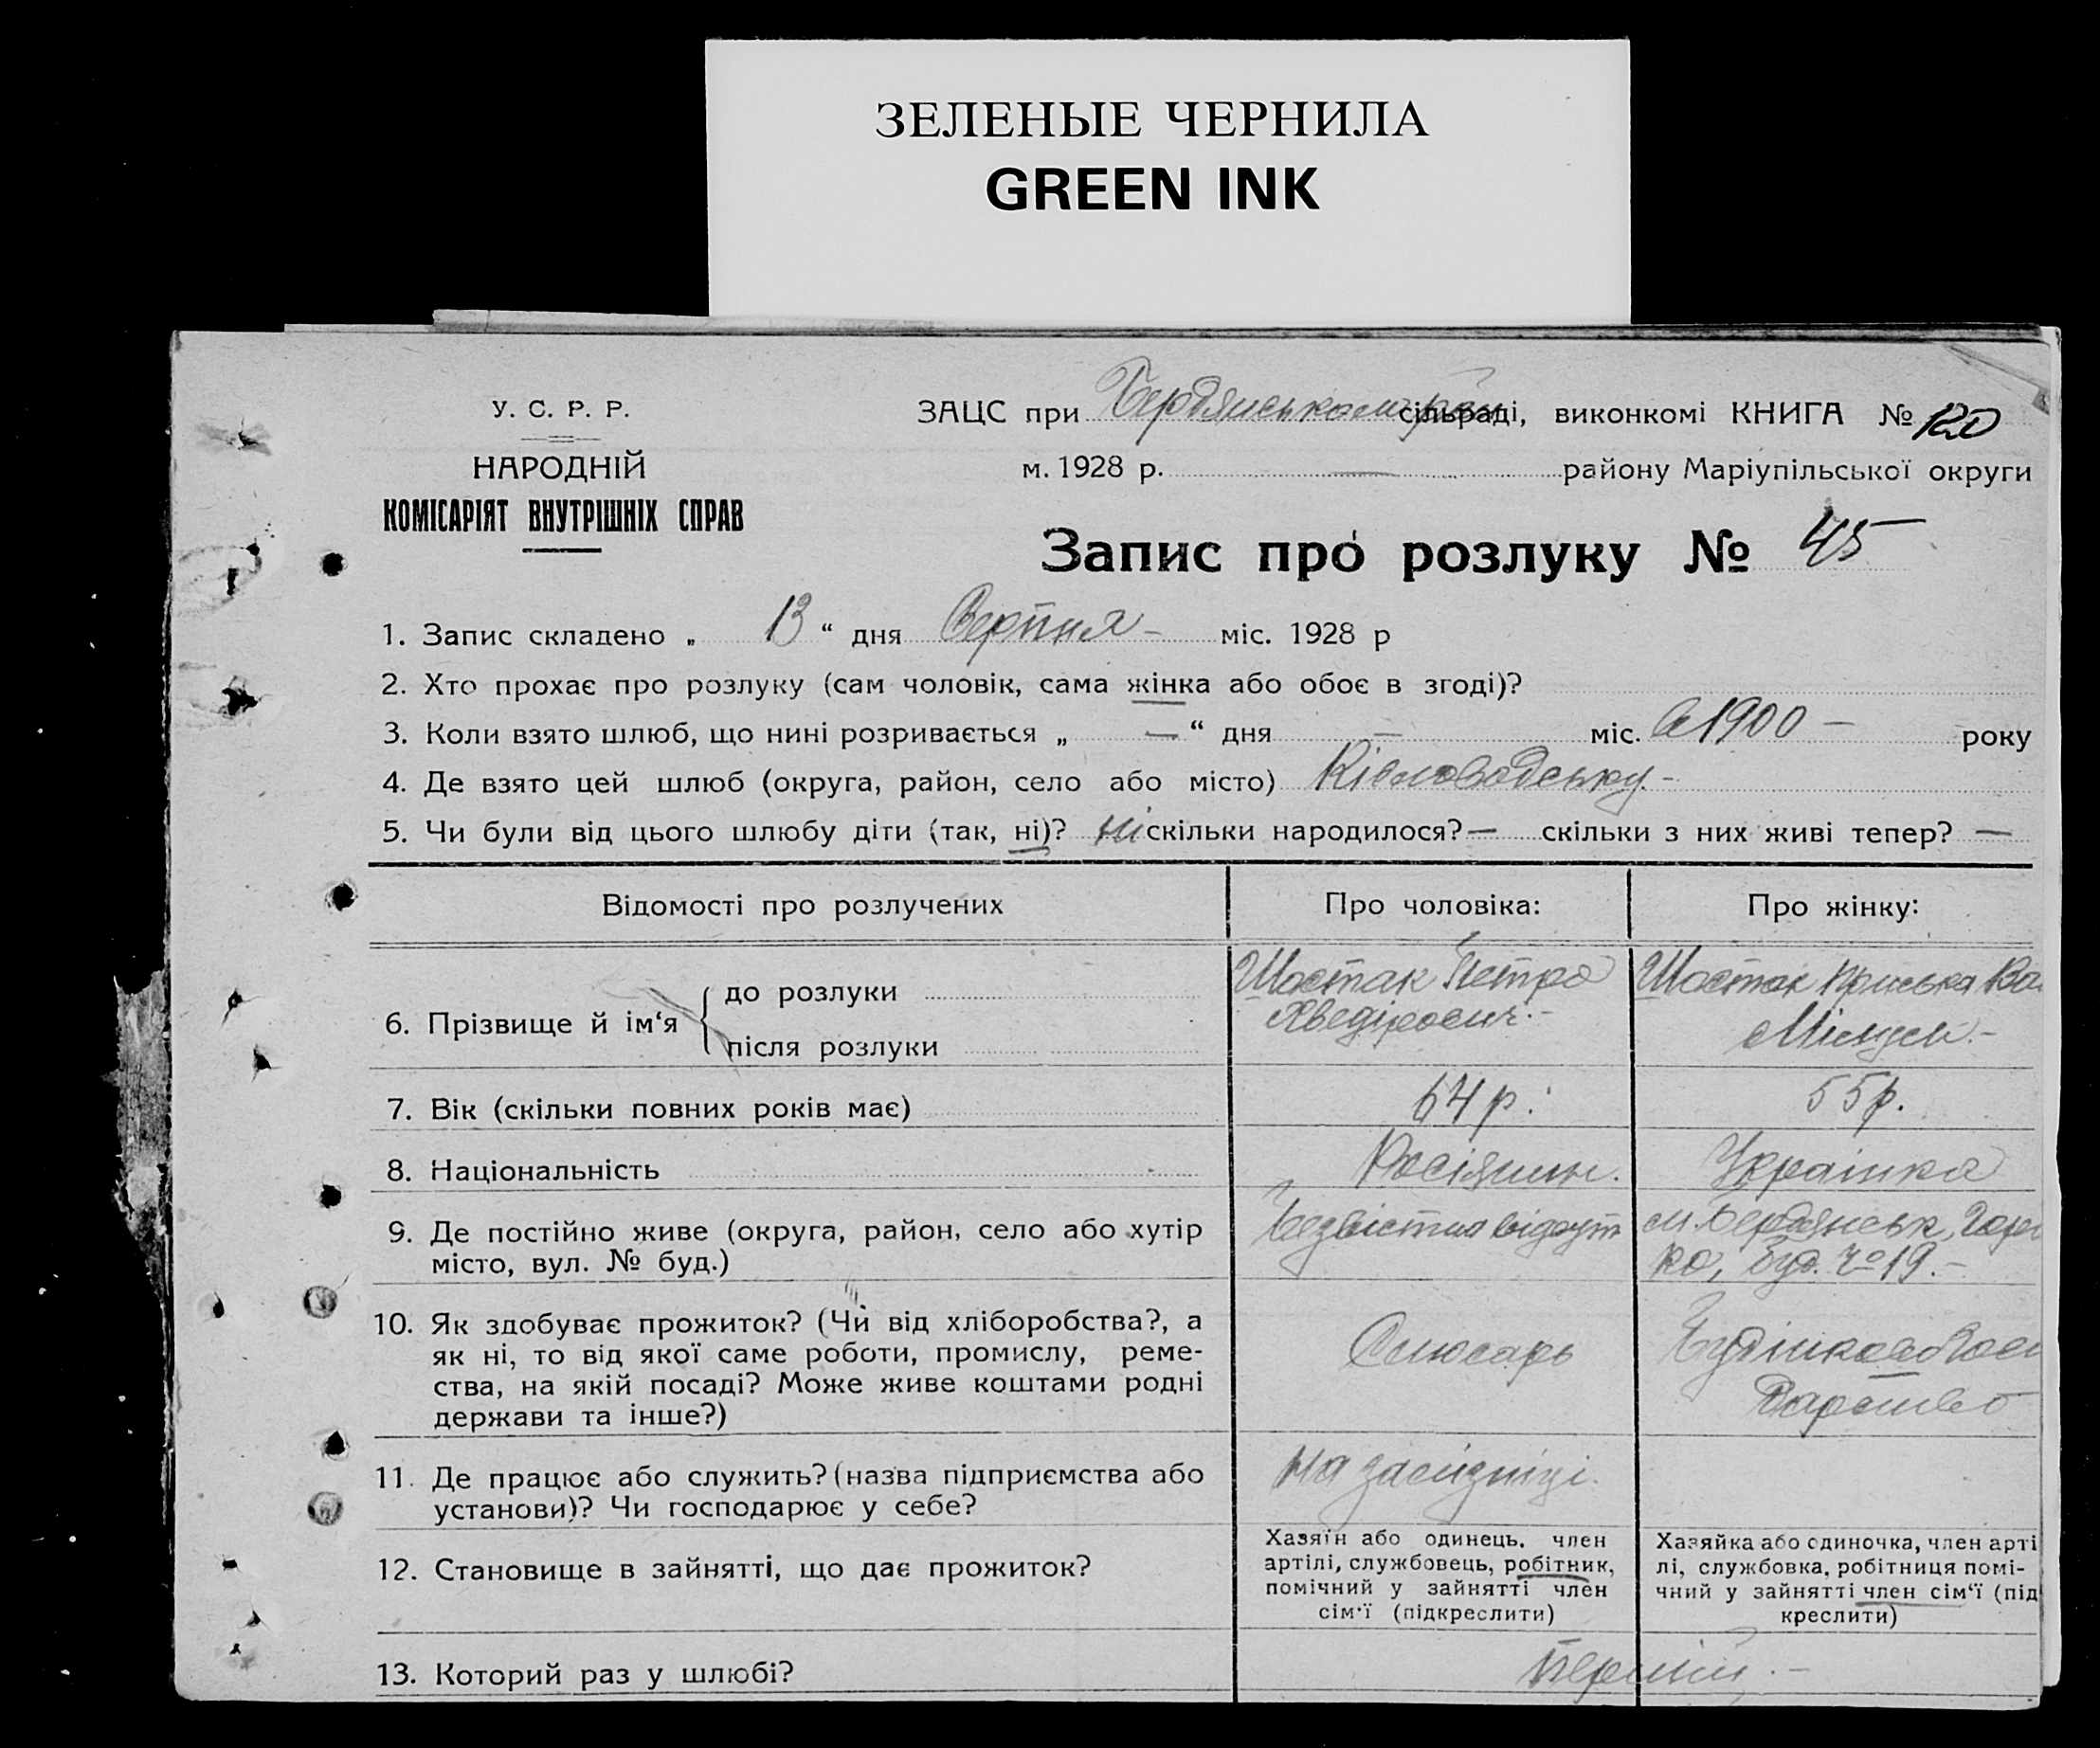 ЗЕЛЕНЫЕ ЧЕРНИЛА
GREEN INK
У. С. Р. Р.
НАРОДНІЙ
КОМІСАРІЯТ ВНУТРІШНІХ СПРАВ
ЗАЦС при Бердянському рай сільраді, виконкомі КНИГА № 120
м. 1928 р. — району Маріупільської округи
Запис про розлуку № 45
1. Запис складено „ 13 “ дня Серпня - міс. 1928 р
2. Хто прохає про розлуку (сам чоловік, сама жінка або обоє в згоді)?
3. Коли взято шлюб, що нині розривається „ — “ дня — міс. 1900 — року
4. Де взято цей шлюб (округа, район, село або місто) Кісловодську.-
5. Чи були від цього шлюбу діти (так, ні)? Ні скільки народилося? — скільки з них живі тепер? —
Відомості про розлучених
Про чоловіка:
Про жінку:
6. Прізвище й ім‘я
до розлуки
після розлуки
Шостак Петро
Хведірович.-
Шостак Приська Ва
7. Вік (скільки повних років має)
64 р.
55 р.
8. Національність
Росіянин.
Українка
9. Де постійно живе (округа, район, село або хутір
місто, вул. № буд.)
Безвістна відсут
м. Бердянськ,
ко, буд. № 19.-
10. Як здобуває прожиток? (Чи від хліборобства?, а
як ні, то від якої саме роботи, промислу, реме-
ства, на якій посаді? Може живе коштами родні
держави та інше?)
Слюсарь
11. Де працює або служить? (назва підприємства або
установи)? Чи господарює у себе?
На залізниці.
12. Становище в зайнятті, що дає прожиток?
Хазяїн або одинець, член
артілі, службовець, робітник,
помічний у зайнятті член
сім‘ї (підкреслити)
Хазяйка або одиночка, член арті
лі, службовка, робітниця помі-
чний у зайнятті член сім‘ї (під
креслити)
13. Которий раз у шлюбі?
Перший.-